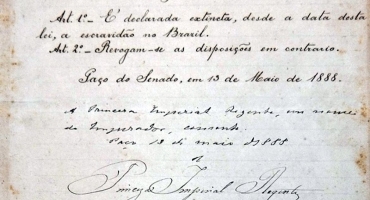 Art. 1º - É declarada extincta, desde a data desta
lei, a escravidão no Brazil.
Art. 2º - Revogam-se as disposições em contrario.
Paço do Senado, em 13 de Maio de 1888.
A Princeza Imperial Regente, em nome
do Imperador, consente.
Paço 13 de maio de 1888
Princeza Imperial Regente